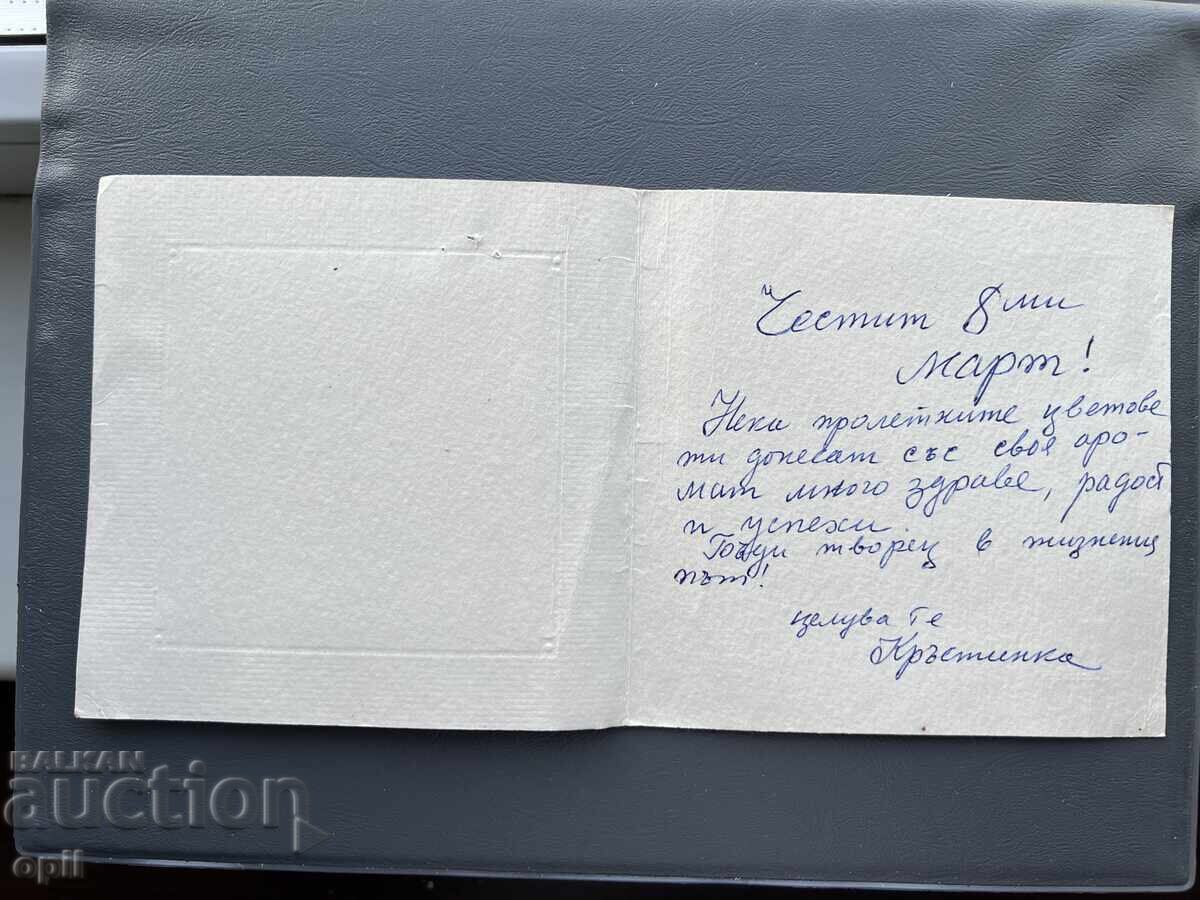 Честит 8ми
март!
Нека пролетните цветове
ти донесат със своя аро-
мат много здраве, радост
и успехи.
творец в жизнения
път!
целува те
Кръстинка
BALKAN
auction
opll